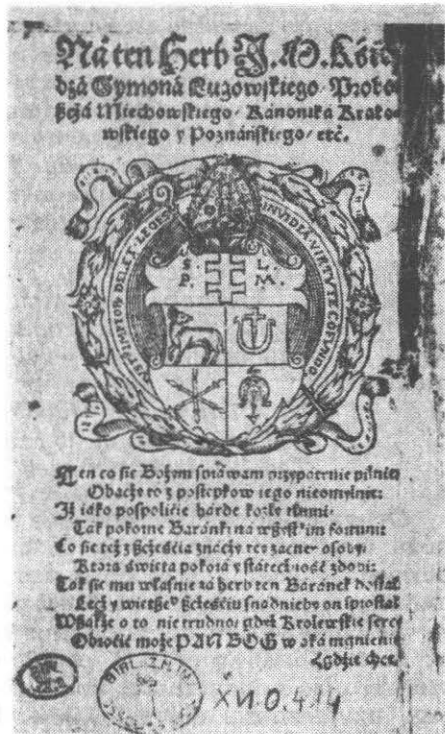 Ná ten Herb J. M. Kſię
dzá Symoná Lugowskiego Probo
ſzczá Miechowskiego Kanoniká Krako-
wskiego y Poznáńskiego etć.
LEGES INVIDIA VIRTVTE
S. L.
P. M.
Ten co ſie Bożym ſpráwam przypátruie pilnie
Obaczy to z poſtępkow iego nieomylnie:
Iż iáko poſpolicie hárde
Ták pokorne Báránki ná wſzyſtkim fortuni:
Co ſie też z ſzczeſcia znáczy tey zacney oſoby:
Ktorą święta pokorá y ſtátecżność zdobi:
Ták ſie mu właſnie zá herb ten Báránek doſtał
Lecż y wietſze° ſzczeſciu ſnadnieby on ſproſtał
Wſzákże o to nie trudno: gdyż Krolewskie ſerce
Obroćić może PAN BOG w oká mgnieniu
gdzie chce.
BIBL.
XVI.O.414